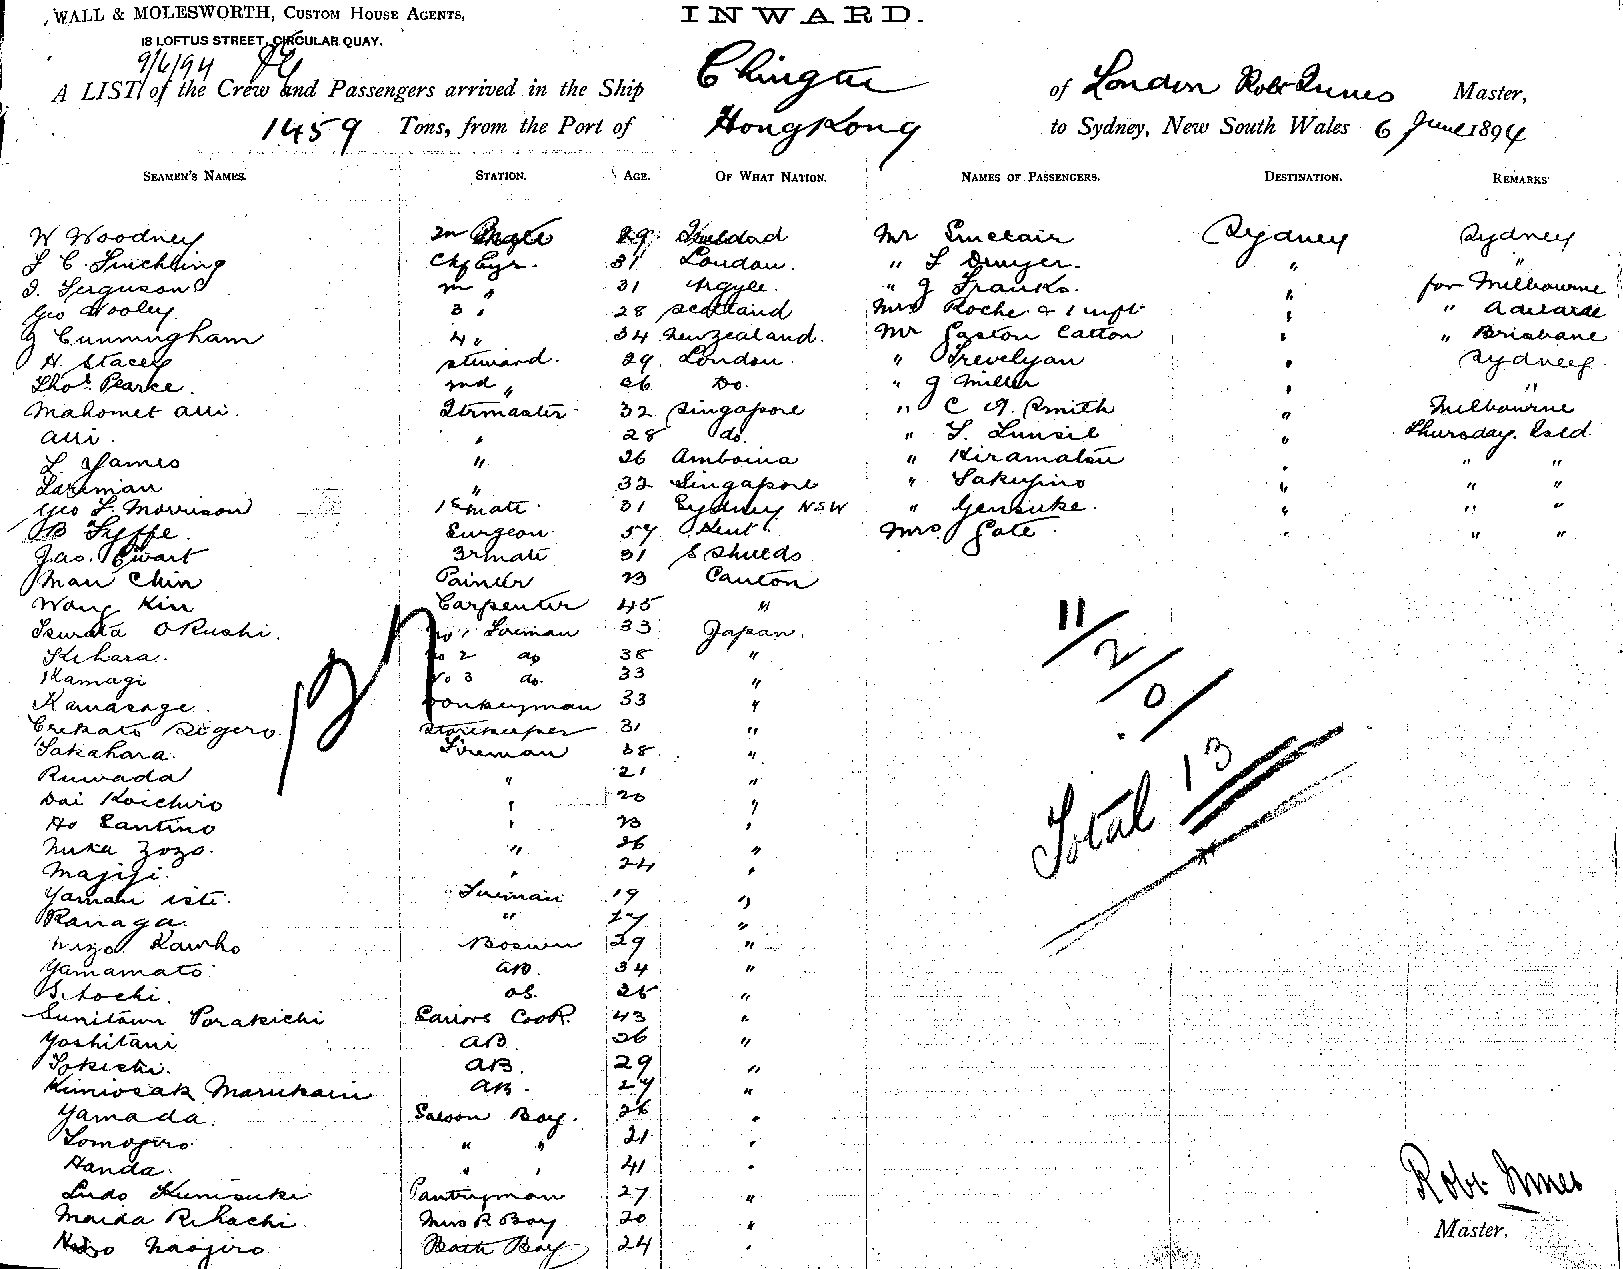 WALL & MOLESWORTH, CUSTOM HOUSE AGENTS,
18 LOFTUS STREET, CIRCULAR QUAY.
INWARD.
9/6/94
A LIST of the Crew and Passengers arrived in the Ship Chingtu of London Robt Innes Master,
1459 Tons, from the Port of HongKong to Sydney, New South Wales 6 June 1894
SEAMEN'S NAMES. STATION. AGE. OF WHAT NATION. NAMES OF PASSENGERS. DESTINATION. REMARKS
W Woodney 2n Mate 29 Mr Sinclair Sydney Sydney
Chf Eyr. 31 London. " " "
J. Ferguson 31 Argyle. " J Franks. " for Melbourne
Geo Wooley 3 " 28 Scotland Mrs Roche & 1 inft " " Adelaide
J Cunningham 4 " 34 New Zealand. Mr Gaston Catton " " Brisbane
H Stacey steward. 29 London. " Trevelyan " Sydney
Thos. Pearce. 2nd " 26 Do. " J Miller " "
Mahomet Alli. Qtrmaster 32 Singapore " C A. Smith " Melbourne
Alli. " 28 do. " " Thursday. Isld
L James " 26 Amboina " Hiramatsu " " "
" 32 Singapore " " " "
Geo F. Morrison 1st mate. 31 Sydney NSW " Gensuke. " " "
B Fyffe. Surgeon. 57 Kent. Mrs Gate " " "
Jas. Ewart 3r mate 31 S Shields
Man Chin Painter 23 Canton
Wang Kin Carpenter 45 "
Okushi. No 1 Fireman 33 Japan.
Kihara. No 2 do 38 "
Kamagi No 3 do. 33 "
Kawasage. Donkeyman 33 "
Sigero. Storekeeper 31 "
Takahara. Fireman 38 "
Kuwada " 21 "
Dai Koichiro " 20 "
Ho Santino " 23 "
Zozo. " 26 "
Majiji. " 24 "
Fireman 19 "
Kanaga. " 27 "
Kawho Boswn 29 "
Yamamato AB. 34 "
Os. 25 "
Porakichi Sailors Cook. 43 "
Yoshitani AB. 26 "
Tokichi. AB. 29 "
AB. 27 "
Yamada. Saloon Boy. 26 "
Tomojiro " " 21 "
Handa. " " 41 "
Pantryman 27 "
Maida Rihachi Mess R Boy 20 "
Naojiro Bath Boy 24 "
11/2/0/
Total 13
Robt Innes
Master.